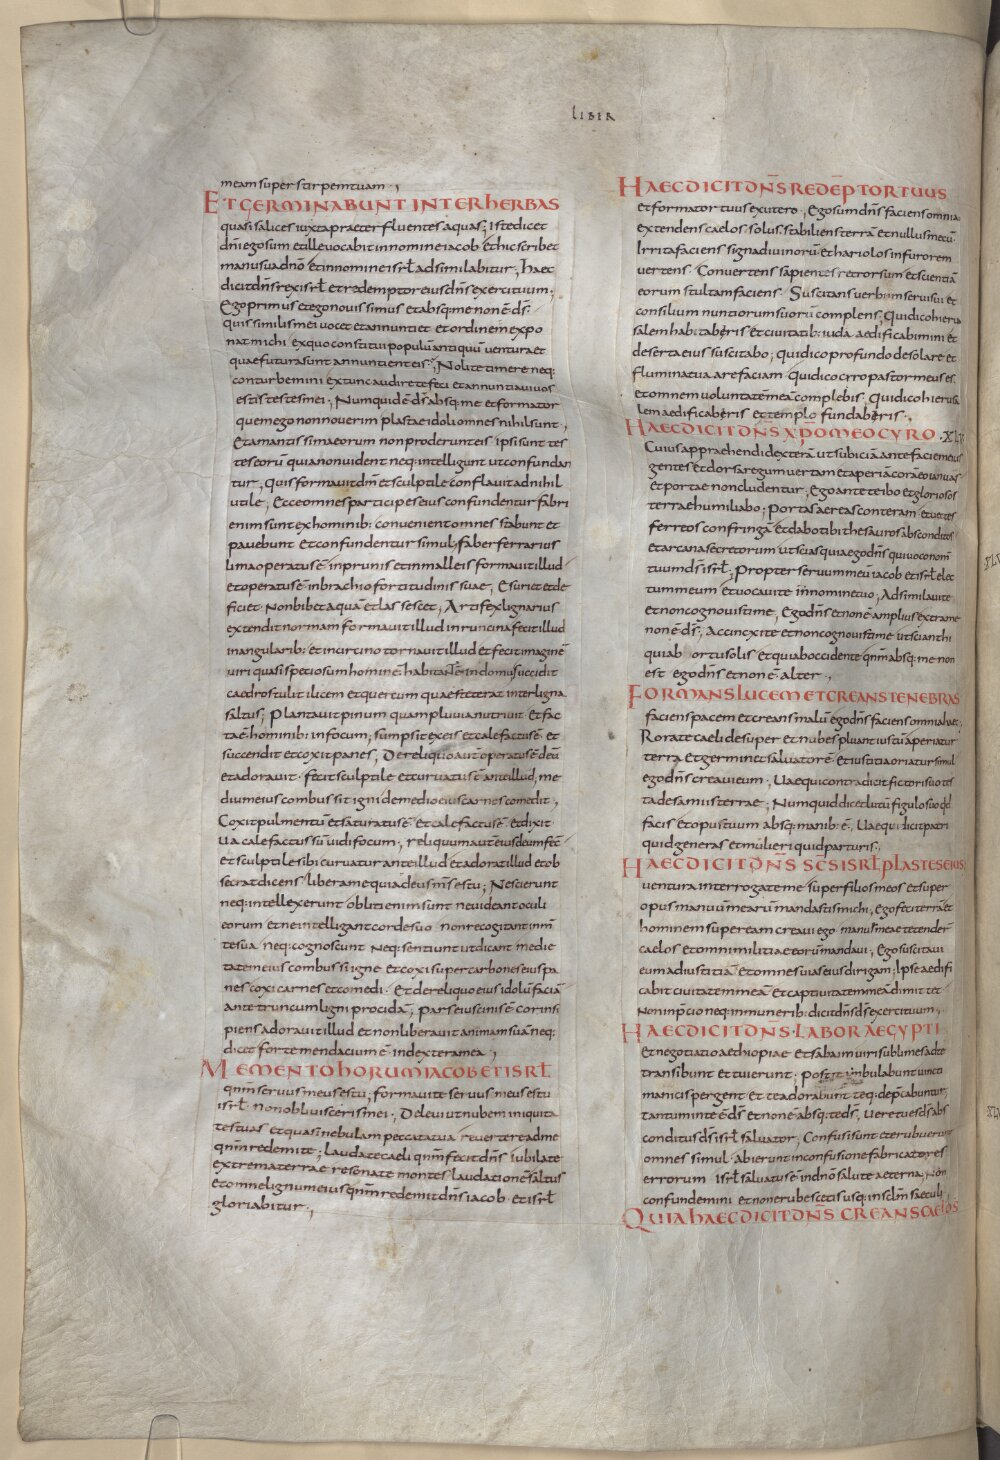 LIBER
meam super stirpem tuam .,
ET GERMINABUNT INTER HERBAS
quasi salices iuxta praeter fluentes aquas; Iste dicet
dn̄i ego sum et ille vocabit in nomine iacob et hic scribet
manu sua dn̄o et in nomine isrl̄ adsimilabitur; haec
dicit dn̄s rex isrl̄ et redemptor eius dn̄s exercituum;
Ego primus et ego novissimus et absq: me non ē ds̄.
quis similis mei vocet et annuntiet et ordinem expo
nat michi ex quo constitui populū antiquū ventura et
quae futura sunt annuntient eis; Nolite timere neq:
conturbemini ex tunc audire te feci et annuntiavi vos
estis testes mei; Numquid ē ds̄ absq: me et formator
quem ego non noverim plastae idoli omnes nihil sunt,
et amantissima eorum non proderunt eis ipsi sunt tes
tes eorū quia non vident neq: intellegunt ut confundan
tur, quis formavit dm̄ et sculptile conflavit ad nihil
utile; Ecce omnes participes eius confundentur fabri
enim sunt ex hominib: convenient omnes stabunt et
pavebunt et confundentur simul; faber ferrarius
lima operatus ē in prunis et in malleis formavit illud
et operatus ē in brachio fortitudinis suae; Esuriet et de
ficiet. Non bibet aquā et lassescet; Artifex lignarius
extendit normam formavit illud in runcina fecit illud
in angularib: et in circino tornavit illud et fecit imaginē
viri quasi speciosum hominē habitantē in domu succidit
caedros tulit ilicem et quercum quae steterat inter ligna
saltus; Plantavit pinum quam pluvia nutrivit et fac
ta ē hominib: in focum; sumpsit ex eis et calefactus ē et
succendit et coxit panes; De reliquo aut̄ operatus ē deū
et adoravit. fecit sculptile et curvatus ē ante illud, me
dium eius combussit igni de medio eius carnes comedit,
Coxit pulmentū et saturatus ē et calefactus ē et dixit
Ua calefactus sū vidi focum; reliquum aut̄ eius deum fec̄
et sculptile sibi curvatur ante illud et adorat illud et ob
secrat dicens libera me quia deus ms̄ es tu; Nescierunt
neq: intellexerunt obliti enim sunt ne videant oculi
eorum et ne intelligant corde suo non recogitant in m̄
te sua neq: cognoscunt neq: sentiunt ut dicant medie
tatem eius combussi igne et coxi super carbones eius pa
nes coxi carnes et comedi. Et de reliquo eius idolū faciā
ante truncum ligni procidā; Pars eius cinis ē cor insi
piens adoravit illud et non liberavit animam suā neq:
dicet forte mendacium ē in dextera mea,
MEMENTO HORUM IACOB ET ISRL̄
qnm̄ servus meus es tu; formavi te servus meus es tu
isrl̄. non oblivisceris mei; Delevi ut nubem iniquita
tes tuas et quasi nebulam peccata tua revertere ad me
qnm̄ redemi te; laudate caeli qnm̄ fecit dn̄s iubilate
extrema terrae resonate montes laudationē saltus
et omne lignum eius qnm̄ redemit dn̄s iacob et isrl̄
gloriabitur;
HAEC DICIT DN̄S REDĒPTOR TUUS
et formator tuus ex utero; Ego sum dn̄s faciens omnia
extendens caelos. solus. stabiliens terrā et nullus mecū.
Irrita faciens signa divinorū et hariolos in furorem
vertens. Convertens sapientes retrorsum et scientiā
eorum stultam faciens. Suscitans verbum servi sui et
consilium nuntiorum suorū complens; Qui dico hieru
salem habitaberis et civitatib: iuda aedificabimini et
deserta eius suscitabo; qui dico profundo desolare et
flumina tua arefaciam. qui dico cyro pastor meus es.
et omnem voluntatē meā complebis. Qui dico hierusa
lem aedificaberis et templo fundaberis.,
HAEC DICIT DN̄S XPO MEO CYRO . XLV
Cuius apprehendi dexterā ut subiciā ante faciem eius
gentes et dorsa regum vertam et aperiā corā eo ianuas
et portae non cludentur; Ego ante te ibo et gloriosos
terrae humiliabo; portas aereas conteram et vectes
ferreos confringā et dabo tibi thesauros absconditos
et arcana secretorum ut scias quia ego dn̄s qui voco nom̄
tuum ds̄ isrl̄; Propter servum meū iacob et isrl̄ elec
tum meum et vocavi te in nomine tuo; Adsimilavi te
et non cognovisti me, Ego dn̄s et non ē amplius extra me
non ē ds̄; Accinxi te et non cognovisti me ut sciant hi
qui ab ortu solis et qui ab occidente qnm̄ absq: me non
est ego dn̄s et non ē alter,
FORMANS LUCEM ET CREANS TENEBRAS
faciens pacem et creans malū ego dn̄s faciens omnia haec,
Rorate caeli desuper et nubes pluant iustū aperiatur
terra et germinet salvatorē et iustitia oriatur simul
ego dn̄s creavi eum. Uae qui contradicit fictori suo tes
ta de samiis terrae; Numquid dicet lutū figulo suo qd
facis et opus tuum absq: manib: ē, Uae qui dicit patri
quid generas et mulieri quid parturis;
HAEC DICIT DN̄S SC̄S ISRL̄ PLASTES EIUS;
ventura interrogate me super filios meos et super
opus manuū mearū mandastis michi, ego feci terrā et
hominem super eam creavi ego manus meae tetender̄
caelos et omni militiae eorū mandavi; Ego suscitavi
eum ad iustitiā et omnes vias eius dirigam; Ipse aedifi
cabit civitatem meā et captivitatem meā dimittet.
Non in p̄cio neq: in munerib: dicit dn̄s ds̄ exercituum,
HAEC DICIT DN̄S. LABOR AEGYPTI
et negotiatio aethiopiae et sabaim viri sublimes ad te
transibunt et tui erunt. Post te ambulabunt vincti
manicis pergent et te adorabunt teq: dep̄cabuntur,
tantum in te ē ds̄ et non ē absq: te ds̄, Uere tu es ds̄ abs
conditus ds̄ isrl̄ salvator; Confusi sunt et erubuerunt
omnes simul. abierunt in confusione fabricatores
errorum isrl̄ salvatus ē in dn̄o salute aeterna; Non
confundemini et non erubescetis usq: in sclm̄ saeculi
QUIA HAEC DICIT DN̄S CREANS CAELOS